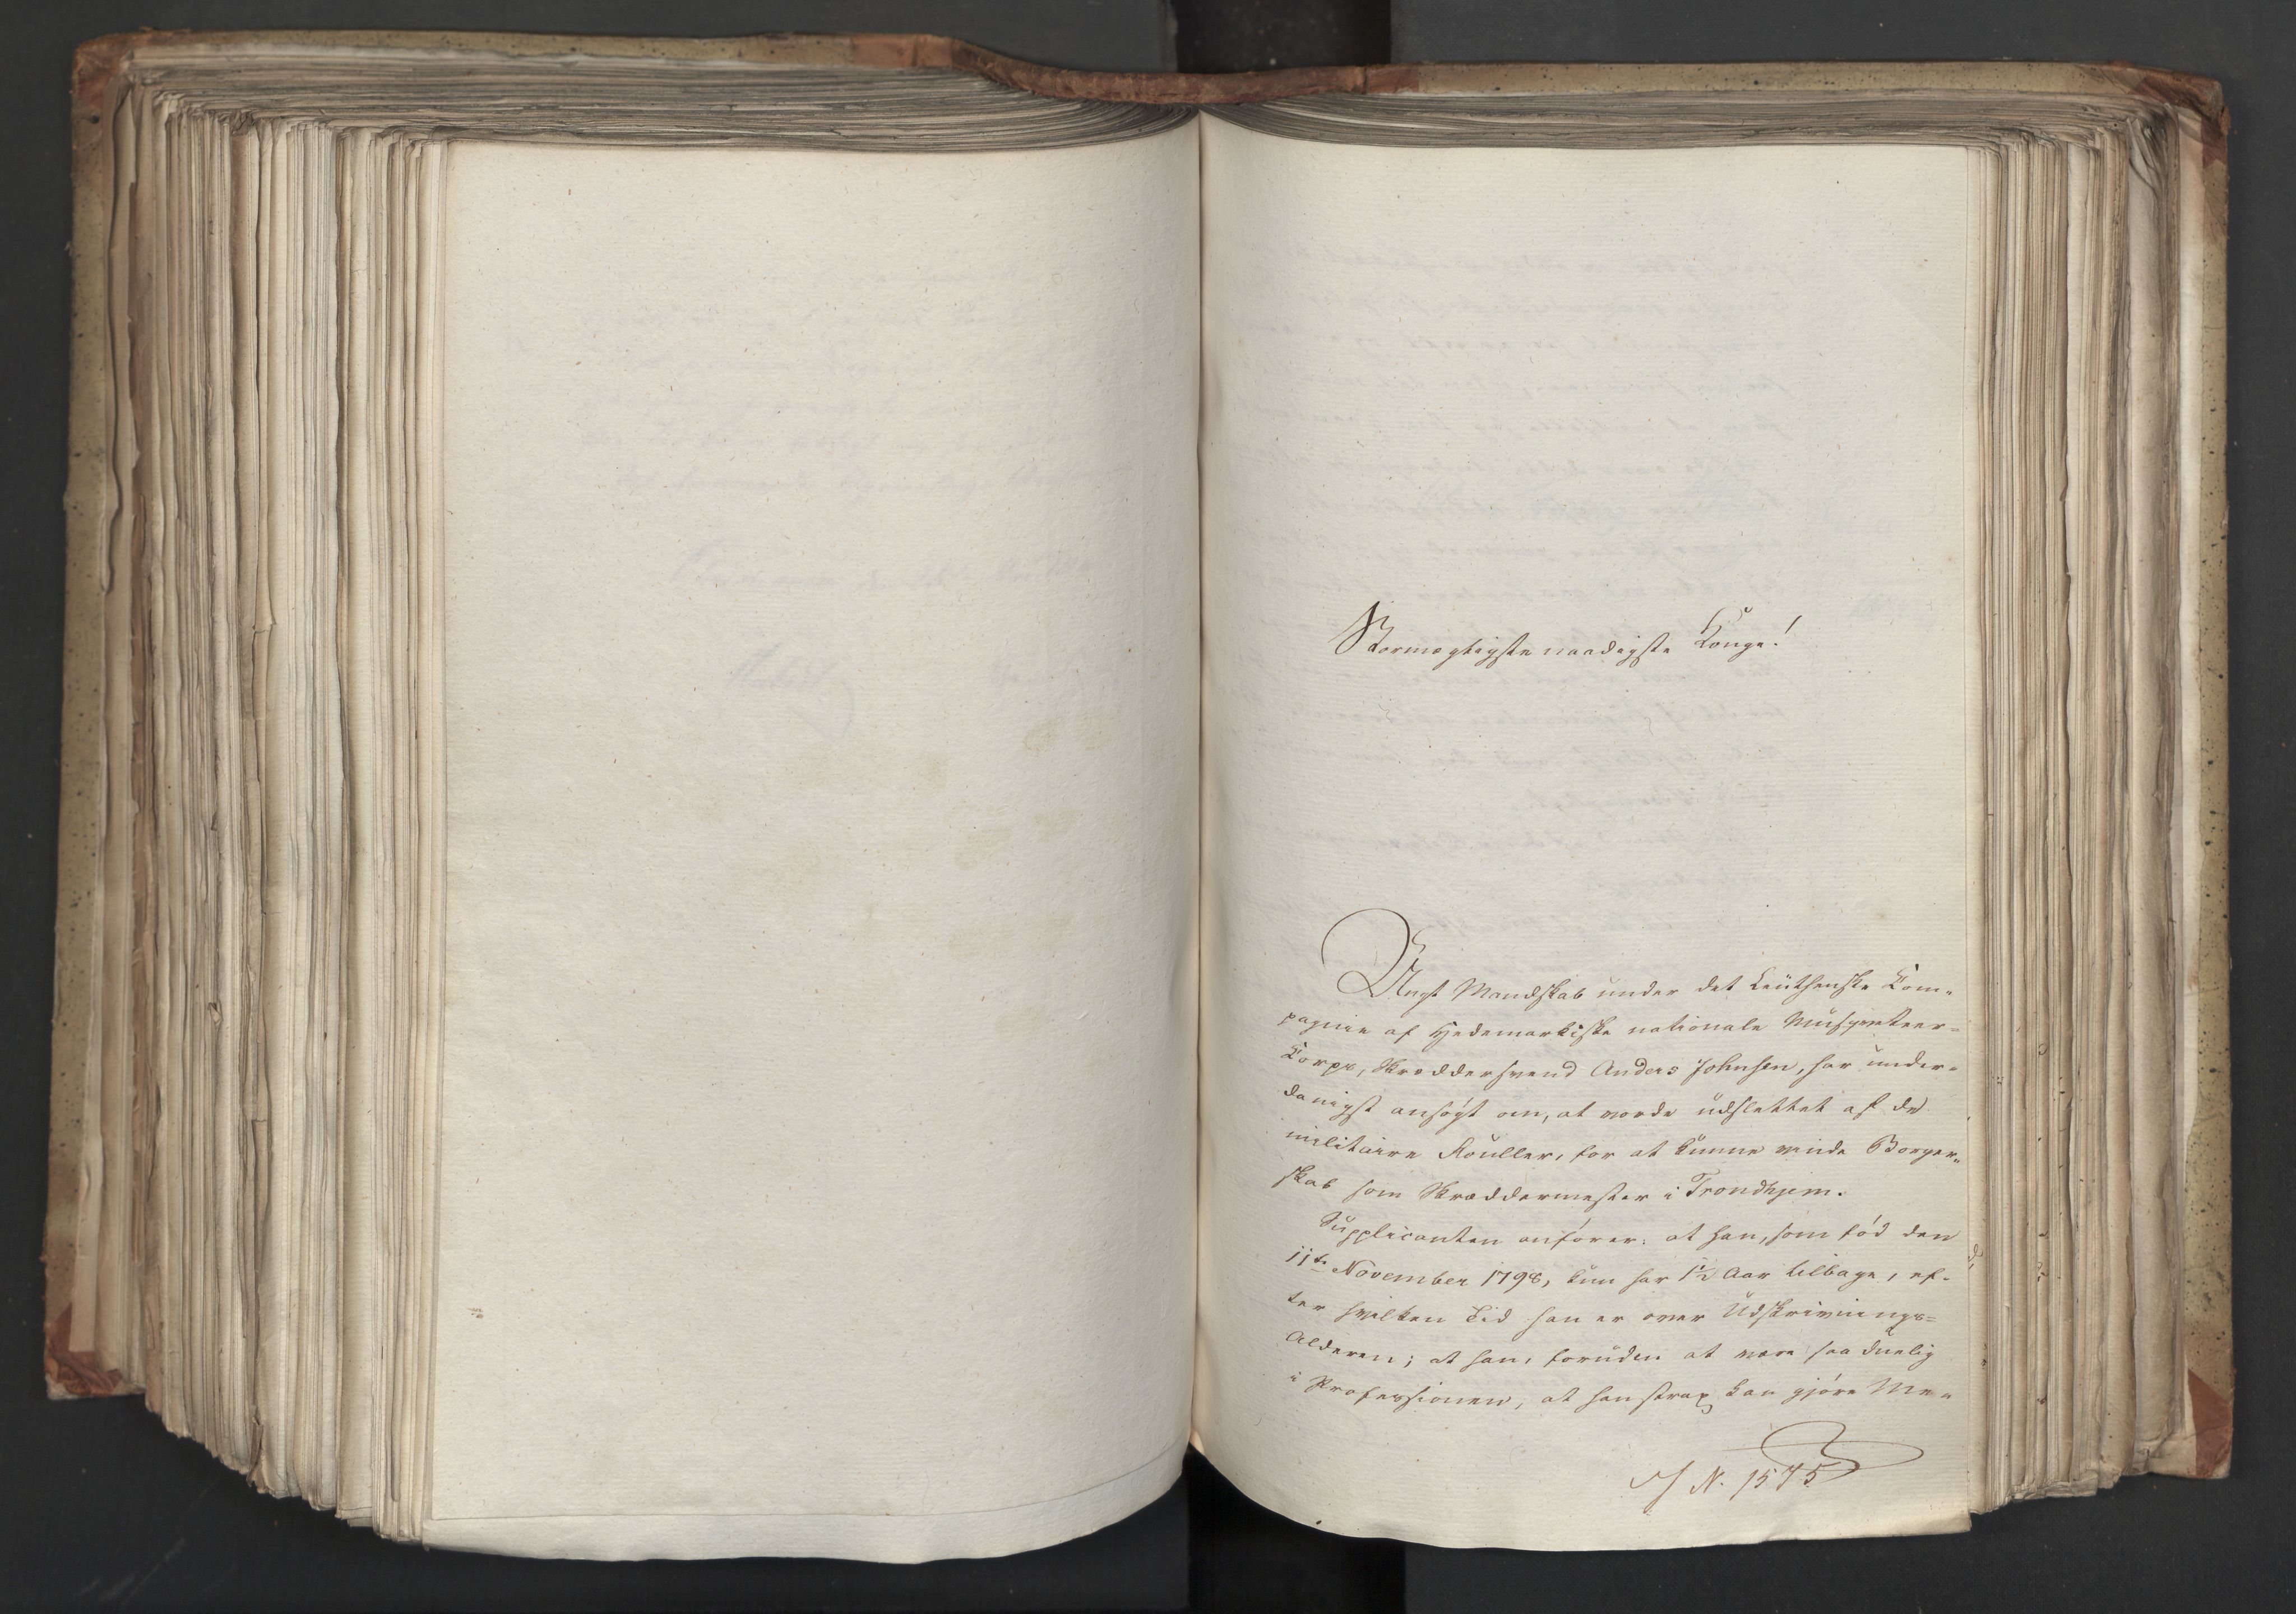 Stormægtigste naadigste Konge!
Ungt Mandskab under det Leuthenske Kom-
pagnie af Hedemarkiske nationale Musqueteer-
Corps, Skræddersvend Anders Johnsen, har under-
danigst ansøgt om, at vorde udslettet af de
militaire Rouller, for at kunne vinde Borger-
skab som Skræddermester i Trondhjem.
Supplicanten anfører: at han, som fød den
11te November 1798, kun har 1½ Aar tilbage, ef-
ter hvilken Tid han er over Udskrivnings-
Alderen; at han, foruden at være saa duelig
i Professionen, at han strax kan gjøre Me-
J N. 1575